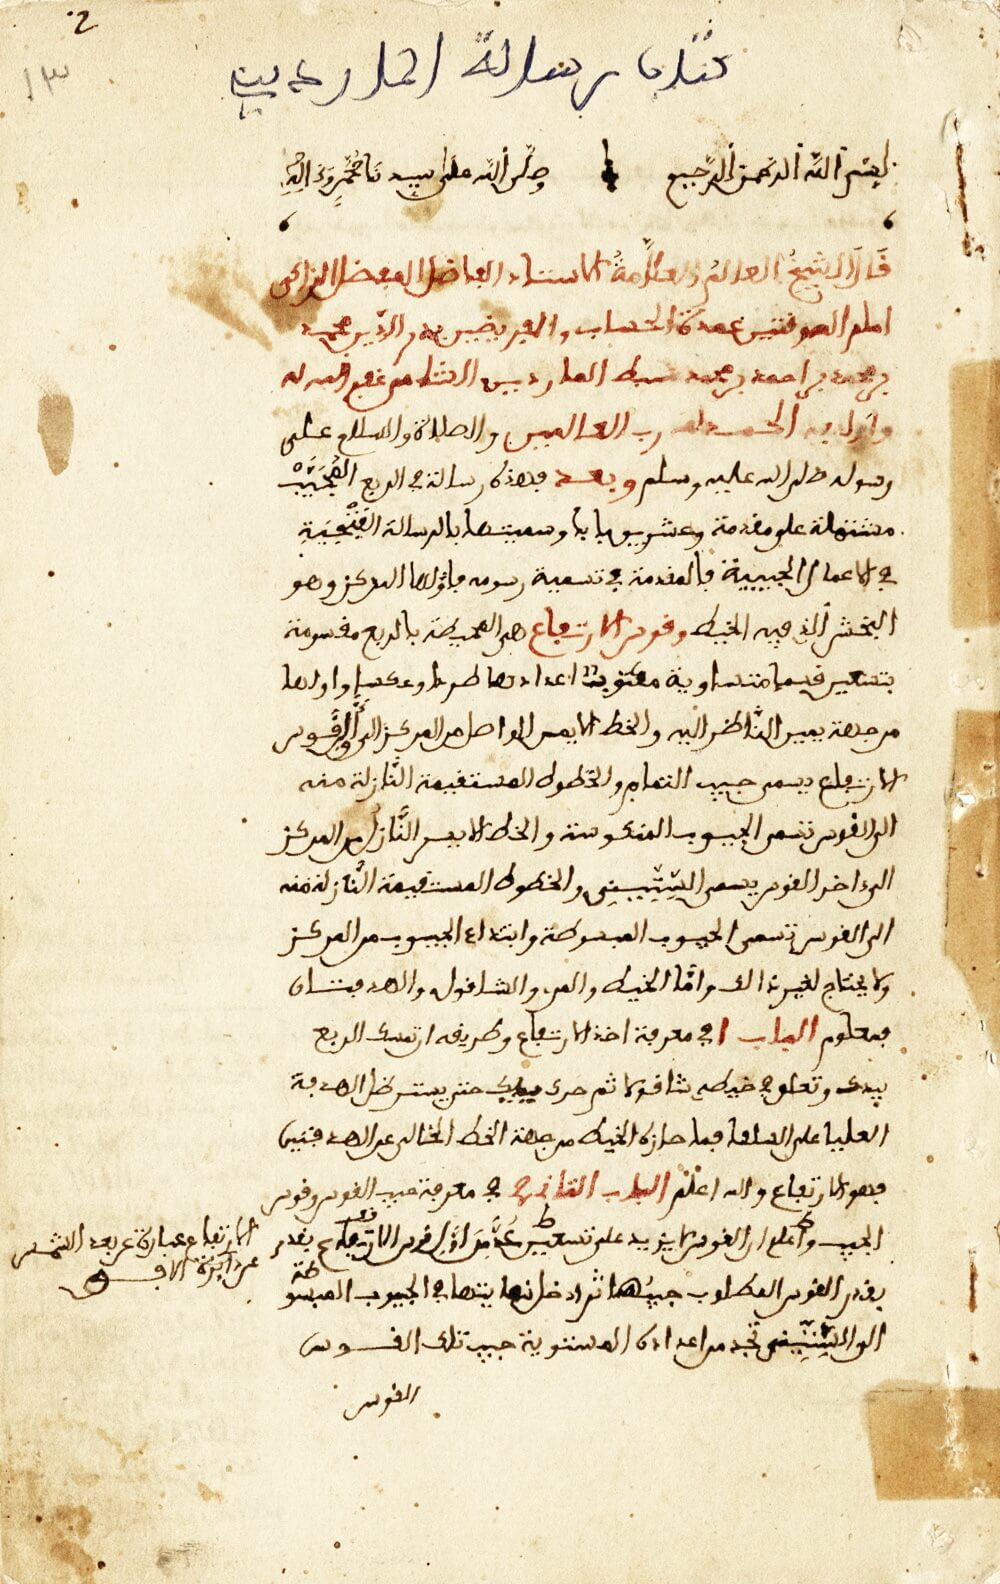 2
١٣
كتاب رسالة المارديني
بسم الله الرحمن الرحيم وصلى الله على سيدنا محمد وءاله
قال الشيخ العالم العلامة الاستاذ الفاضل
امام الموقتين عمدة الحساب والفرضيين بدر الدين محمد
بن محمد بن احمد بن محمد سبط المارديني الشامي غفر الله له
ولوالديه الحمد لله رب العالمين والصلاة والسلام على
رسوله صلى الله عليه وسلم وبعد فهذه رسالة في الربع المجيب
مشتملة على مقدمة وعشرين بابا وسميتها بالرسالة الفتحية
في الاعمال الجيبية فالمقدمة في تسمية رسومه فاولها المركز وهو
البخش الذي فيه الخيط وقوس الارتفاع هي المحيطة بالربع مقسومة
بتسعين قسما متساوية مكتوبة اعدادها طردا وعكسا واولها
من جهة يمين الناظر اليه والخط الايمن الواصل من المركز الى اول قوس
الارتفاع يسمى جيب التمام والخطوط المستقيمة النازلة منه
الى القوس تسمى الجيوب المنكوسة والخط الايسر النازل من المركز
الى اخر القوس يسمى الستيني والخطوط المستقيمة النازلة منه
الى القوس تسمى الجيوب المبسوطة وابتداء الجيوب من المركز
ولا يحتاج لغير ذالك واما الخيط والمري والشاقول والهدفتان
فمعلوم الباب ا في معرفة اخذ الارتفاع وطريقه ان تمسك الربع
بيدك وتعلق في خيطه شاقولا ثم حرك يدك حتى يستر ظل الهدفة
العليا على السفلى فما حازه الخيط من جهة الخط الخالي عن الهدفتين
فهو الارتفاع والله اعلم الباب الثاني في معرفة جيب القوس وقوس
الجيب واعلم ان القوس لا يزيد على تسعين عد من اول قوس الارتفاع بقدر
بقدر القوس المطلوب جيبها ثم ادخل نهايتها في الجيوب المبسوطة
الى الستيني تجد من اعداده المستوية جيب تلك القوس
القوس
الارتفاع عبارة عن بعد الشمس
عن دائرة الافق